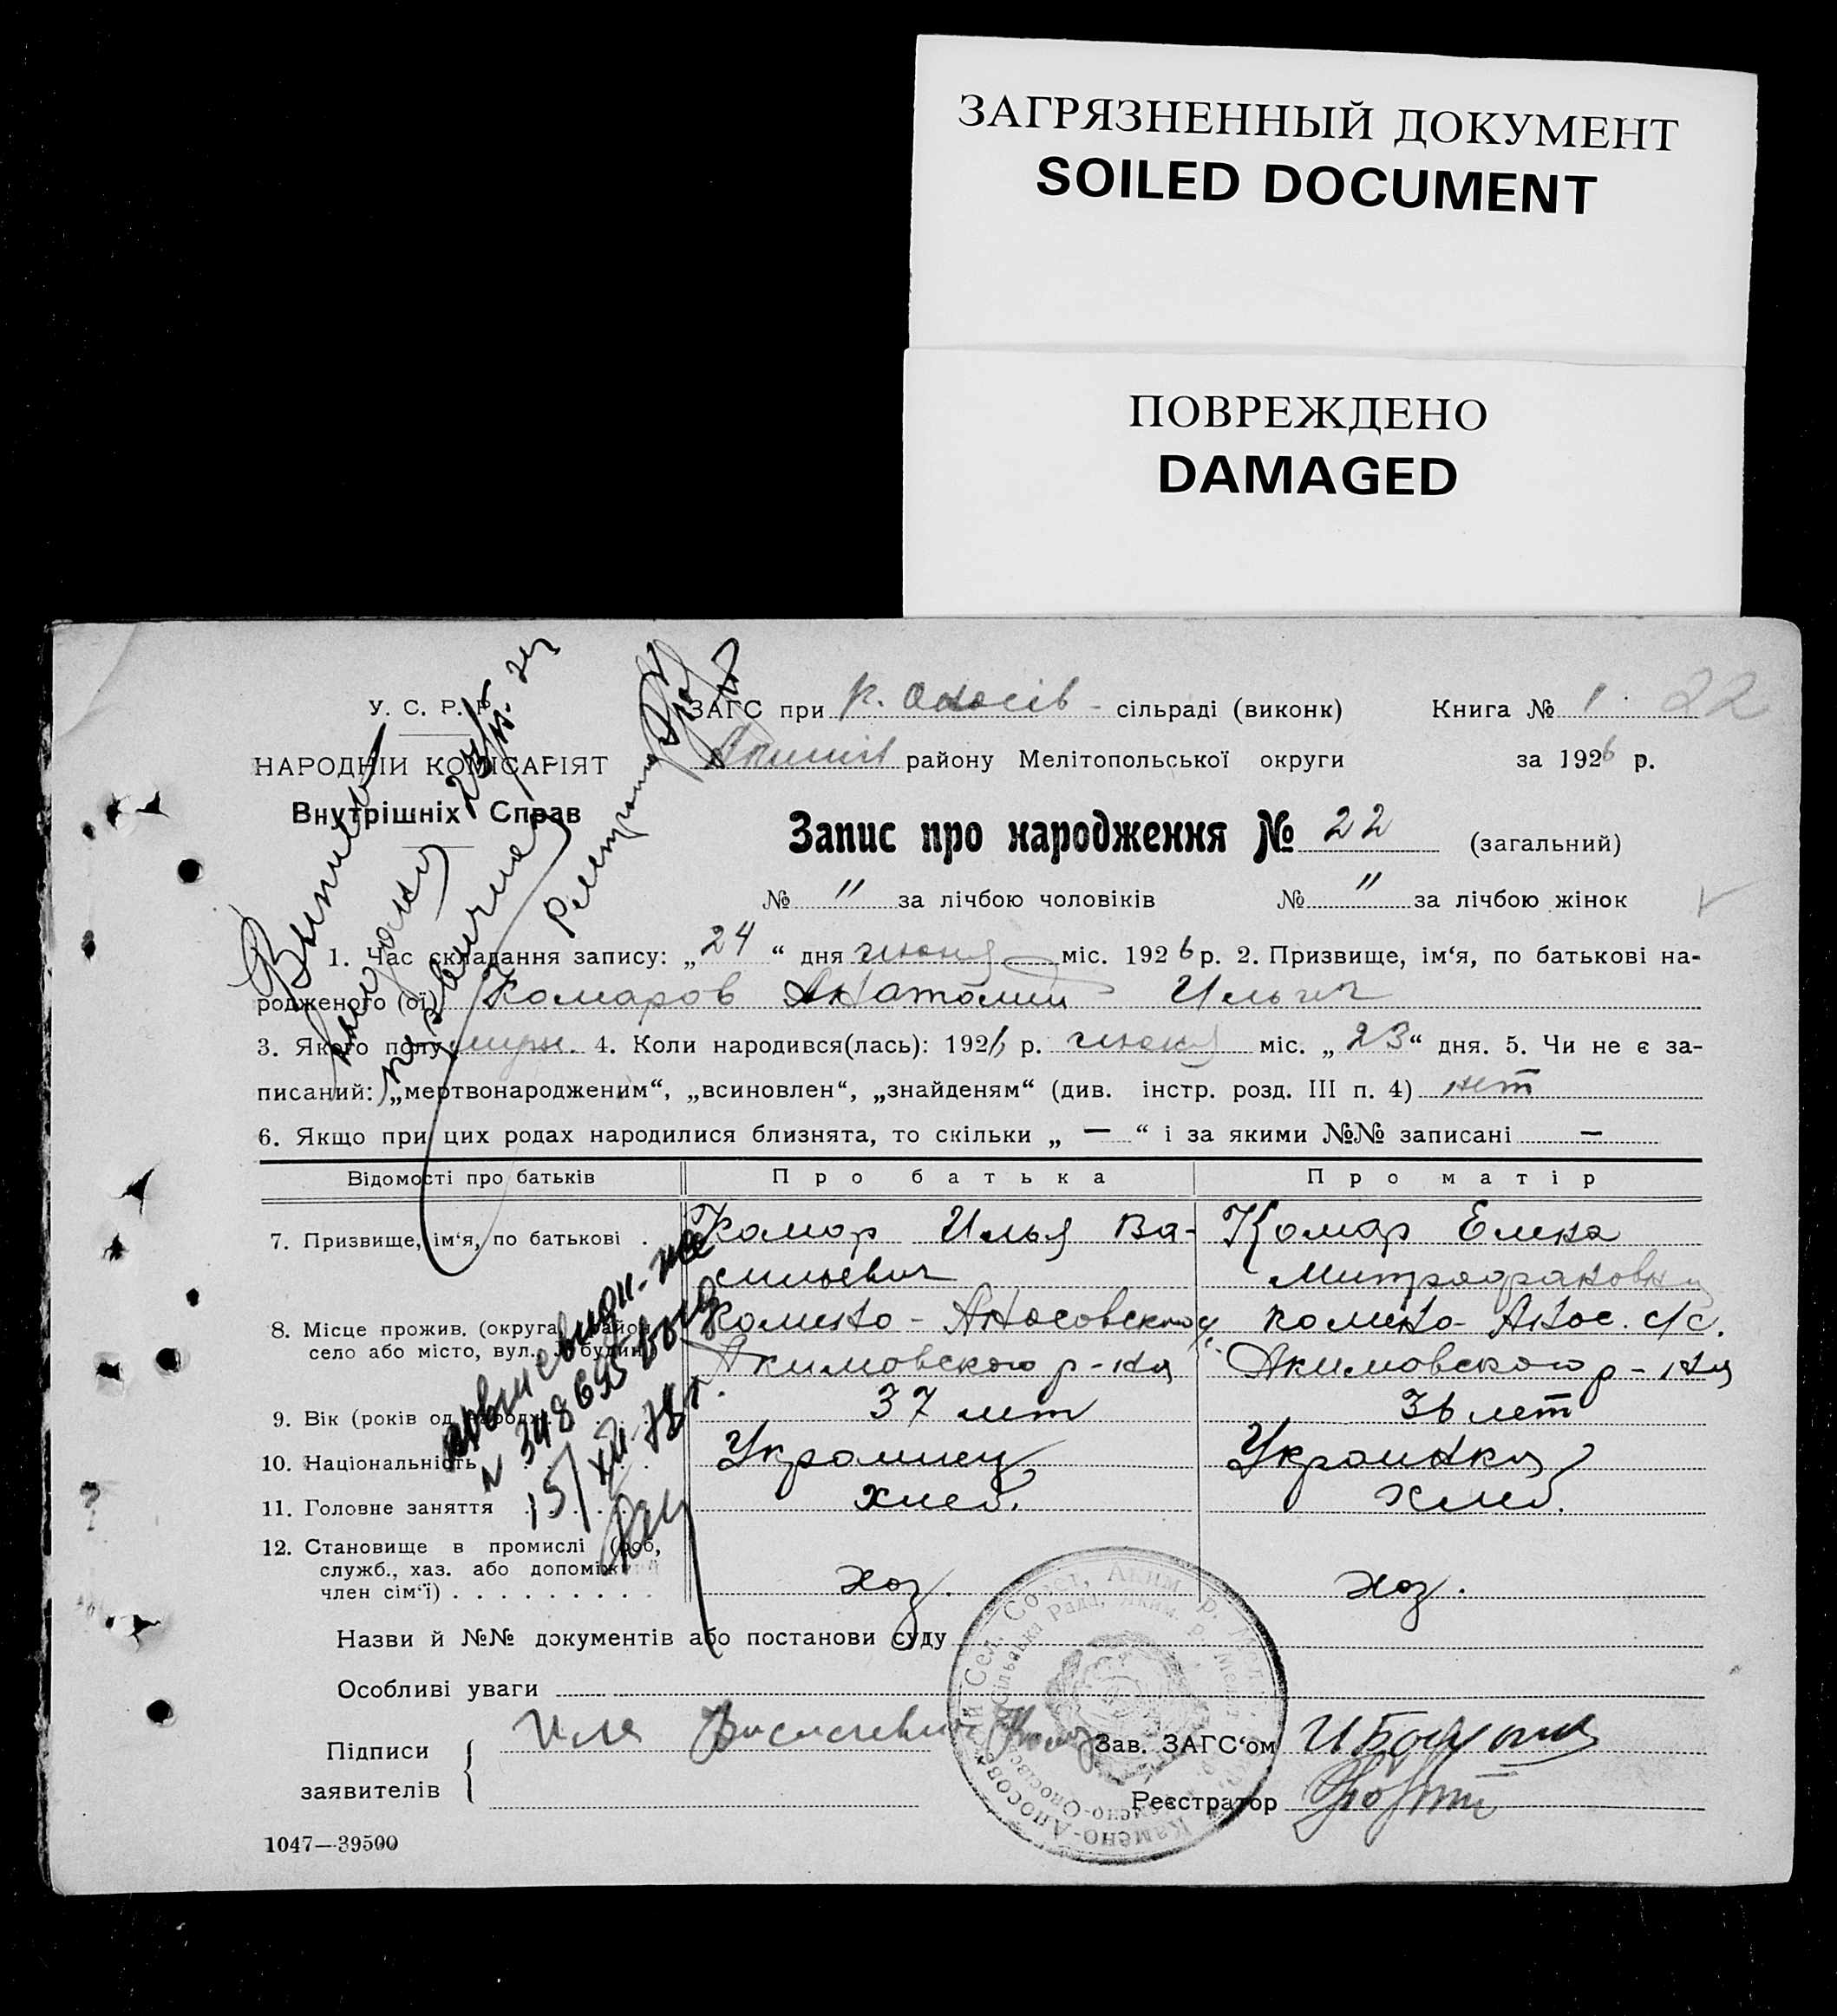 ЗАГРЯЗНЕННЫЙ ДОКУМЕНТ
SOILED DOCUMENT
ПОВРЕЖДЕНО
DAMAGED
У. С. Р. Р.
НАРОДНІЙ КОМІСАРІЯТ
Внутрішніх Справ
ЗАГС при сільраді (виконк) Книга № 1 22
Аким району Мелітопольської округи за 1926 р.
Запис про народження № 22 (загальний)
№ " за лічбою чоловіків № " за лічбою жінок
1. Час складання запису: „24“ дня июня міс. 1926 р. 2. Призвище, ім‘я, по батькові на-
родженого (ої) Комаров Анатолий Ильич
3. Якого полу муж. 4. Коли народився(лась): 1926 р. июня міс. „23“ дня. 5. Чи не є за-
писаний: „мертвонародженим“, „всиновлен“, „знайденям“ (див. інстр. розд. III п. 4) нет
6. Якщо при цих родах народилися близнята, то скільки „ — “ і за якими №№ записані —
Відомості про батьків Про батька Про матір
7. Призвище, ім‘я, по батькові Комар Илья Ва- Комар Елена
сильевич Митрофановна
8. Місце прожив. (округа, район
село або місто, вул., будин. Камено-Аносовского Камено-Анос. с/с.
Акимовского р-на Акимовского р-на
9. Вік (років од народж. 37 лет 36 лет
10. Національність Украинец Украинка
11. Головне заняття хлеб. хлеб.
12. Становище в промислі (роб,
служб., хаз. або допоміжний
член сім‘ї) хоз. хоз.
Назви й №№ документів або постанови суду
Особливі уваги
Підписи
заявителів
Иля Васильевич Зав. ЗАГС‘ом
Реєстратор
1047—39500
N 348695
15/XII-78г.